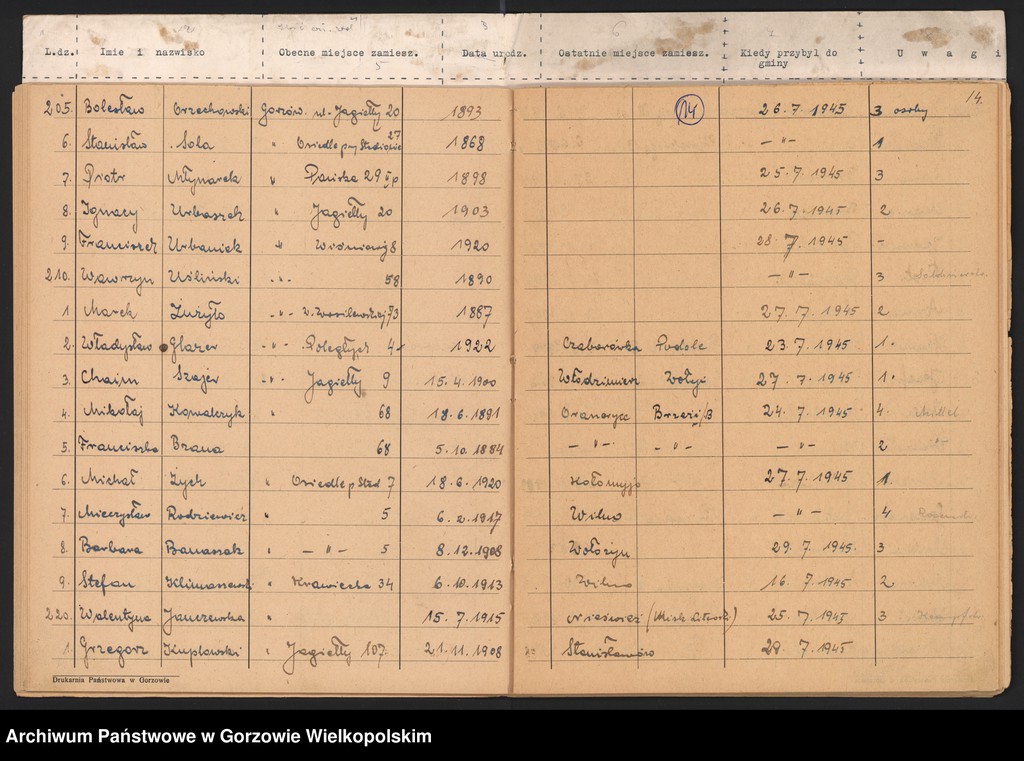 L.dz. Imie i nazwisko Obecne miejsce zamiesz. Data urodz. Ostatnie miejsce zamiesz. Kiedy przybył do gminy U w a g i
5 3 6
14.
205. Bolesław Orzechowski Gorzów. ul. Jagiełły 20 1893 14 26.7.1945 3 osoby
6. Stanisław Sola " Osiedle przy Stadionie 27 1868 — " — 1
7. Piotr Młynarek " Pańska 29 1898 25.7.1945 3
8. Ignacy Urbaszek " Jagiełły 20 1903 26.7.1945 2
9. Franciszek Urbaniak " 8 1920 28 7.1945 -
210. Wawrzyn Uśliński - " - 58 1890 — " — 3
1 Marek Żużyło - " - 1887 27.7.1945 2
2. Władysław Glazer - " - Poległych 4 1922 Czaborówka Podole 23.7.1945 1.
3. Chaim Szajer - " - Jagiełły 9 15.4.1900 Włodzimierz Wołyń 27.7.1945 1.
4. Mikołaj Kowalczyk " 68 18.6.1891 24.7.1945 4.
5. Franciszka Brana 68 5.10.1884 — " — - " - — " — 2
6. Michał Zych " Osiedle p Stad 7 18.6.1920 Kołomyja 27.7.1945 1.
7. Mieczysław Rodziewicz " 5 6.2.1917 Wilno — " — 4
8. Barbara Banaszak " — " — 5 8.12.1908 Wołożyn 29.7.1945. 3
9. Stefan Klimaszewski " Krawiecka 34 6.10.1913 Wilno 16.7.1945 2
220. Walentyna Janczewska " 15.7.1915 Nieśwież 25.7.1945 3
1. Grzegorz Kupłowski " Jagiełły 107 21.11.1908 Stanisławów 29.7.1945
Drukarnia Państwowa w Gorzowie
Archiwum Państwowe w Gorzowie Wielkopolskim